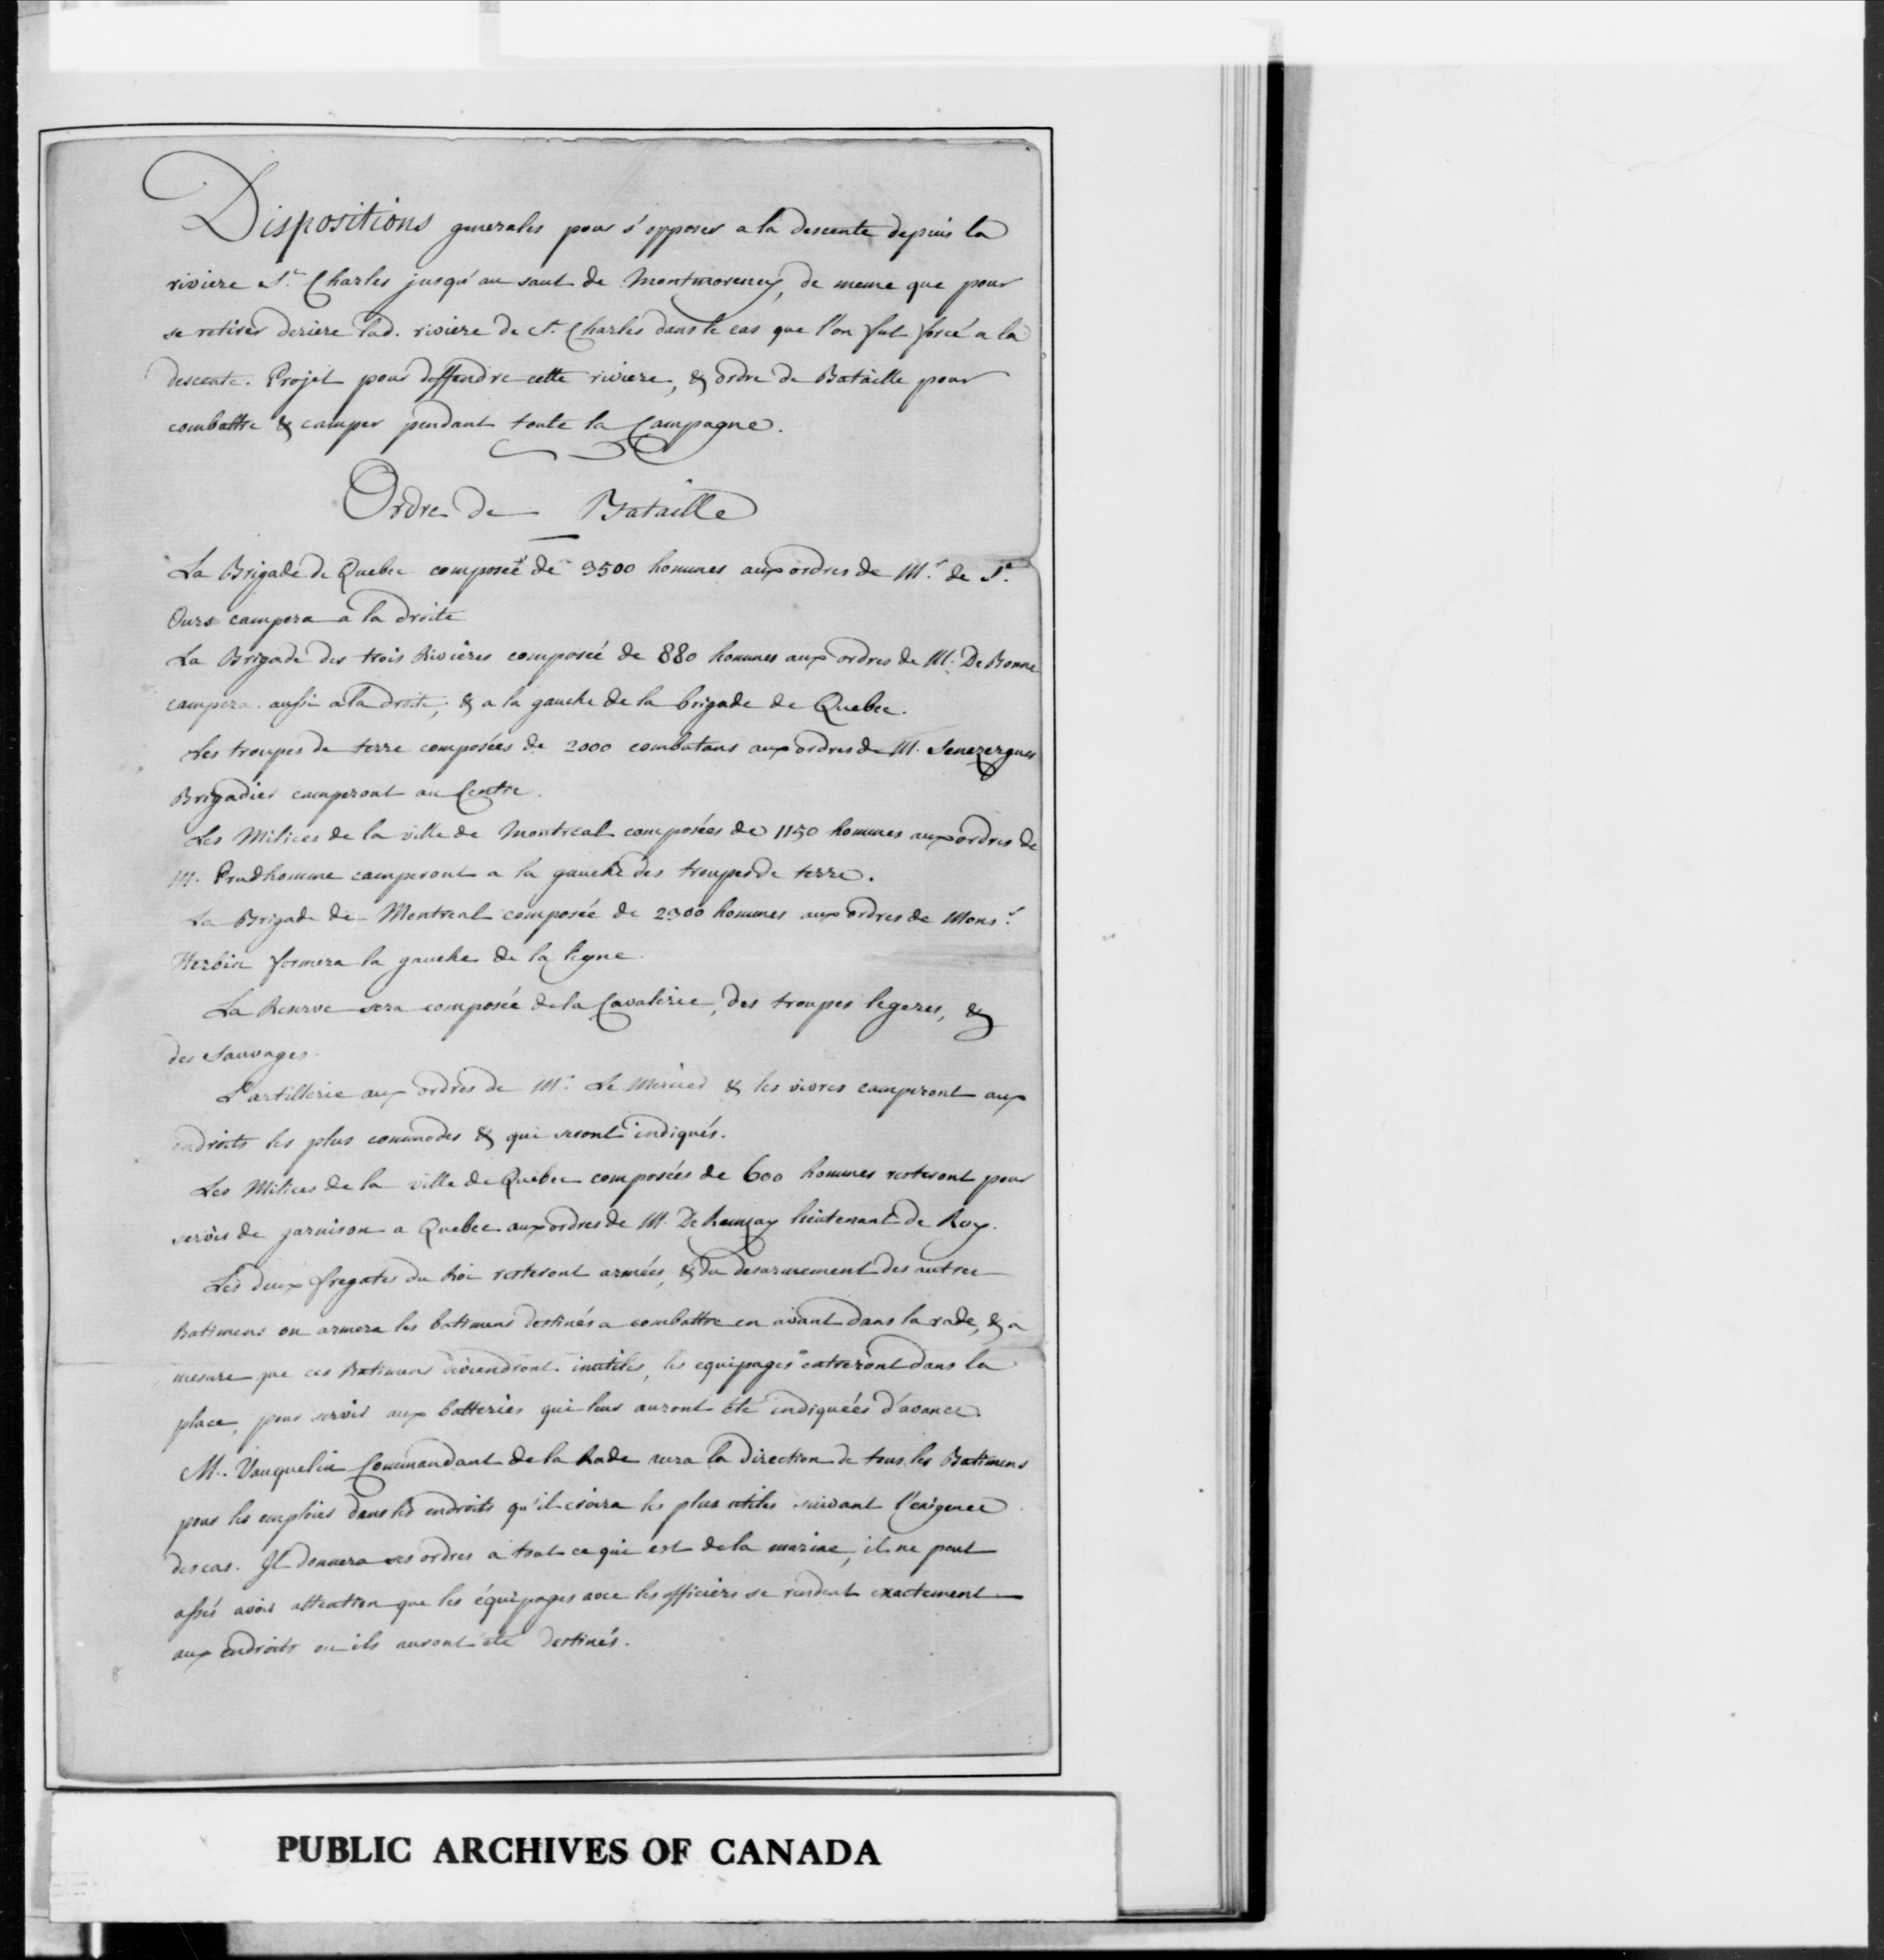 Dispositions generales pour s'opposer a la descente depuis la
riviere St. Charles jusqu'au saut de Montmorency, de meme que pour
se retirer deriere lad. riviere de St. Charles dans le cas que l'on fut forcé a la
descente. Projet pour deffendre cette riviere, & ordre de Bataille pour
combattre & camper pendant toute la Campagne.
Ordre de Bataille
La Brigade de Quebec composée de 3500 hommes aux ordres de Mr. de St.
Ours campera a la droite
La Brigade des trois Rivieres composée de 880 hommes aux ordres de M. De Bonne
campera aussi a la droite, & a la gauche de la brigade de Quebec.
Les troupes de terre composées de 2000 combatans aux ordres de M. Senezergues
Brigadier camperont au Centre.
Les Milices de la ville de Montreal composées de 1150 hommes aux ordres de
M. Prudhomme camperont a la gauche des troupes de terre.
La Brigade de Montreal composée de 2300 hommes aux ordres de Monsr.
Herbin formera la gauche de la ligne.
La Reserve sera composée de la Cavalerie, des troupes legeres, &
des Sauvages.
L'artillerie aux ordres de Mr. Le Mercier & les vivres camperont aux
endroits les plus commodes & qui seront indiqués.
Les Milices de la ville de Quebec composées de 600 hommes resteront pour
servir de garnison a Quebec aux ordres de M. De Ramzay lieutenant de Roy.
Les deux fregates du Roi resteront armées, & du desarmement des autres
Batimens on armera les batimens destinés a combattre en avant dans la rade, & a
mesure que ces Batimens deviendront inutiles, les equipages entreront dans la
place, pour servir aux batteries qui leur auront été indiquées d'avance.
M. Vauquelin Commandant de la Rade aura la direction de tous les Batimens
pour les emploier dans les endroits qu'il croira les plus utiles suivant l'exigence
des cas. Il donnera ses ordres a tout ce qui est de la marine, il ne peut
assés avoir attention que les équipages avec les officiers se rendent exactement
aux endroits ou ils auront été destinés.
8
PUBLIC ARCHIVES OF CANADA